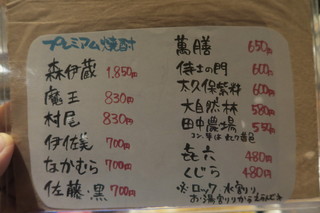 プレミアム焼酎
森伊蔵 1,850円
魔王 830円
村尾 830円
伊佐美 700円
なかむら 700円
佐藤・黒 700円
萬膳 650円
侍士の門 600円
大久保紫粋 600円
大自然林 580円
田中農場 550円
㐂六 480円
くじら 480円
※ロック 水割り
お湯割りからえらんで下